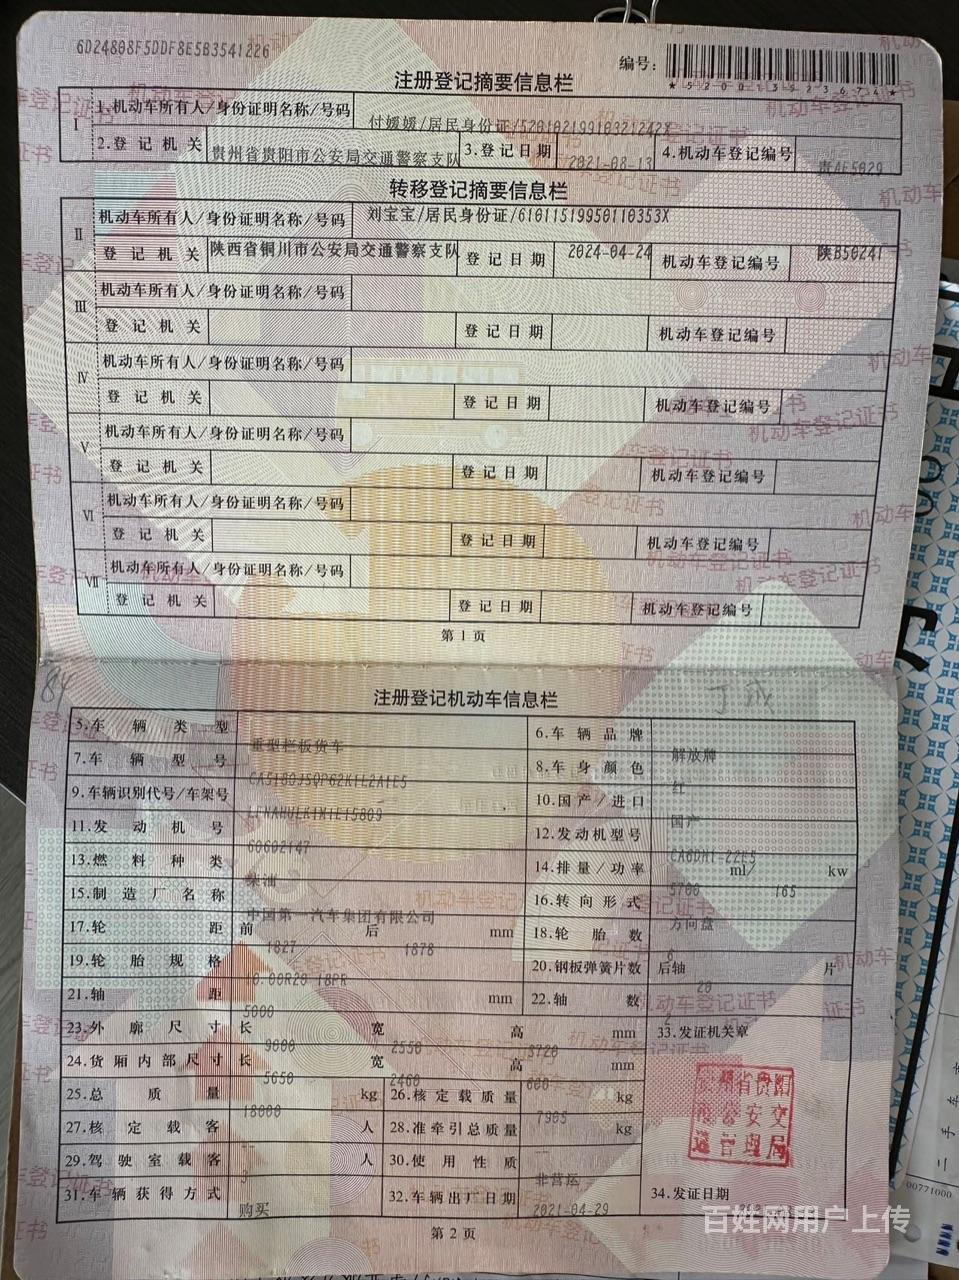 6D24808F5DDF8E5B3541226
编号:
*520013523674*
注册登记摘要信息栏
I 1.机动车所有人/身份证明名称/号码 付媛媛/居民身份证/520102199103212422
2.登记机关 贵州省贵阳市公安局交通警察支队 3.登记日期 2021-08-13 4.机动车登记编号
转移登记摘要信息栏
II 机动车所有人/身份证明名称/号码 刘宝宝/居民身份证/61011519950110353X
登记机关 陕西省铜川市公安局交通警察支队 登记日期 2024-04-24 机动车登记编号 陕B50241
III 机动车所有人/身份证明名称/号码
登记机关 登记日期 机动车登记编号
IV 机动车所有人/身份证明名称/号码
登记机关 登记日期 机动车登记编号
V 机动车所有人/身份证明名称/号码
登记机关 登记日期 机动车登记编号
VI 机动车所有人/身份证明名称/号码
登记机关 登记日期 机动车登记编号
VII 机动车所有人/身份证明名称/号码
登记机关 登记日期 机动车登记编号
第1页
84
注册登记机动车信息栏
5.车辆类型 重型栏板货车 6.车辆品牌 解放牌
7.车辆型号 8.车身颜色 红
9.车辆识别代号/车架号 10.国产/进口 国产
11.发动机号 60602147 12.发动机型号
13.燃料种类 柴油 14.排量/功率 5700 ml/ 165 kw
15.制造厂名称 中国第一汽车集团有限公司 16.转向形式 方向盘
17.轮距 前 1827 后 1878 mm 18.轮胎数 6
19.轮胎规格 10.00R20 18PR 20.钢板弹簧片数 后轴 20 片
21.轴距 5000 mm 22.轴数 2
23.外廓尺寸 长 9000 宽 2550 高 3720 mm 33.发证机关章
24.货厢内部尺寸 长 5650 宽 2460 高 600 mm
25.总质量 18000 kg 26.核定载质量 7905 kg
27.核定载客 -- 人 28.准牵引总质量 -- kg
29.驾驶室载客 3 人 30.使用性质 非营运
31.车辆获得方式 购买 32.车辆出厂日期 2021-04-29 34.发证日期
第2页
百姓网用户上传
00771000